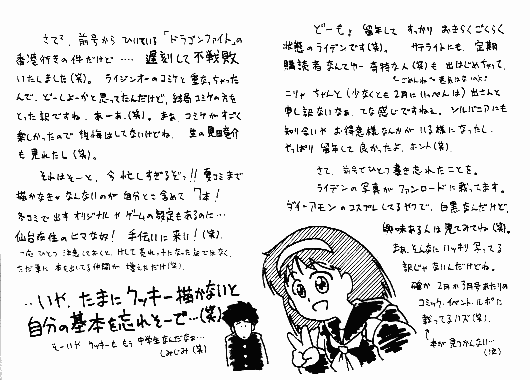 どーも! 留年して すっかり おきらくごくらく
状態のライデンです(笑)。 サテライトにも、定期
購読者なんてゆー奇特な人(笑)も 出はじめちゃって、
ニリャ ちゃんと(少なくとも 2月に1っぺんは) 出さんと
申し訳ないなぁ、てな感じですねェ。シルバニアにも
知り合いや お得意様なんかが いる様になったし、
やっぱり 留年して 良かったよ、ホント(笑)。
さて、前号でひとつ 書き忘れたことを。
ライデンの写真が ファンロードに載ってます。
ダイ・アモンのコスプレしてるヤツで、白黒なんだけど、
興味ある人は 見てみてね(笑)。
まぁ、そんなに ハッキリ 写ってる
訳じゃ ないんだけどね。
確か 2月か3月号あたりの
コミック・イベント・ルポに
載ってるハズ(笑)。
本が 見つかんない…。
さてさて、前号から ひいている「ドラゴンファイト」の
香港行きの件だけど…… 遅刻して不戦敗
いたしました(笑)。 ライジンオーのコミケと 重なっちゃった
んで、どーしよーかと思ってたんだけど、結局コミケの方を
とった訳ですね。あーあ、(笑)。まぁ、コミケがすごく
楽しかったので 後悔はしてないけどね。
も見れたし(笑)。
それはそーと、今 忙しすぎるどっ!! 夏コミまで
描かなきゃなんないのが 自分とこ含めて 7本!
冬コミで出す オリジナルや ゲームの設定もあるのに…
仙台在住の ヒマな奴! 手伝いに来い!(笑)
…いや、たまに クッキー描かないと
自分の基本を忘れそーで…(笑)
そーいや クッキーも もう 中学生なんだなぁ…
しみじみ(笑)